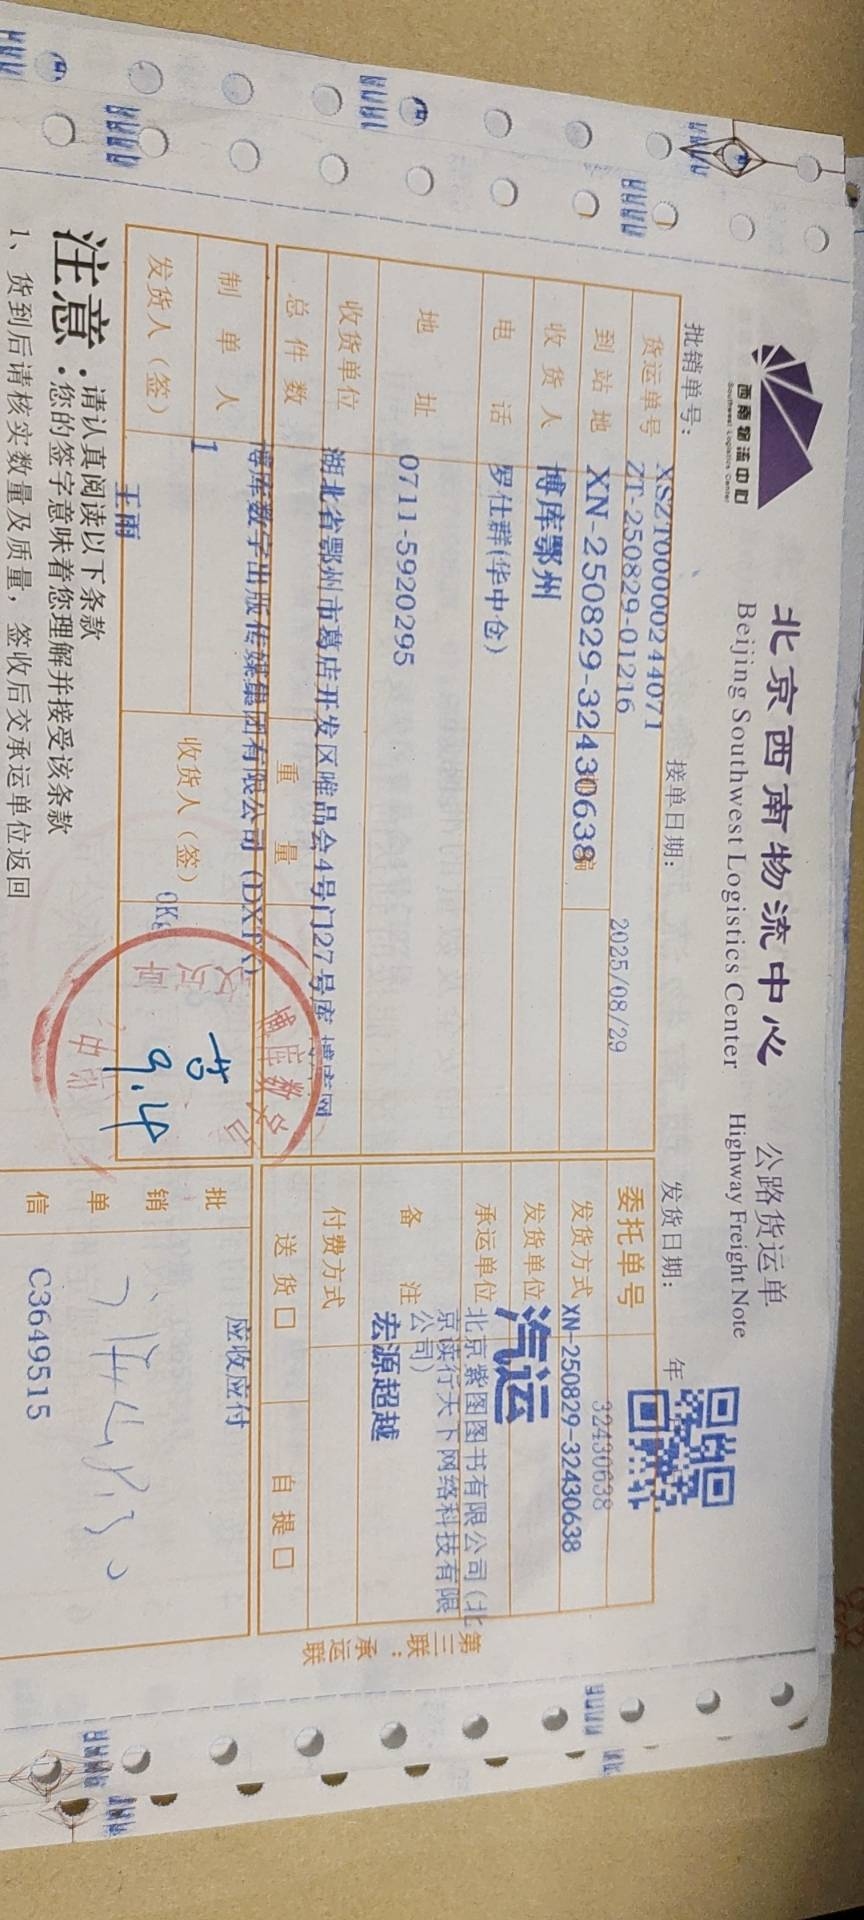 西南物流中心
Southwest Logistics Center
北京西南物流中心 公路货运单
Beijing Southwest Logistics Center Highway Freight Note
批销单号: 接单日期: 发货日期: 年
XSZT00000244071
货运单号 ZT-250829-01216 2025/08/29 委托单号 32430638
到站地 XN-250829-32430638 发货方式 XN-250829-32430638
收货人 博库鄂州 发货单位 汽运
电话 罗仕群(华中仓) 承运单位 北京紫图图书有限公司(北
京读行天下网络科技有限
公司)
地址 0711-5920295 备注 宏源超越
收货单位 湖北省鄂州市葛店开发区唯品会4号门27号库 博库网 付费方式
总件数 重量 送货口 自提口
博库数字出版传媒集团有限公司(DXTX)
制单人 1 收货人(签) 0Kg 应收应付
发货人(签) 王雨 9.4
批销单信 C3649515
第三联:承运联
注意: 请认真阅读以下条款
您的签字意味着您理解并接受该条款
1、货到后请核实数量及质量,签收后交承运单位返回